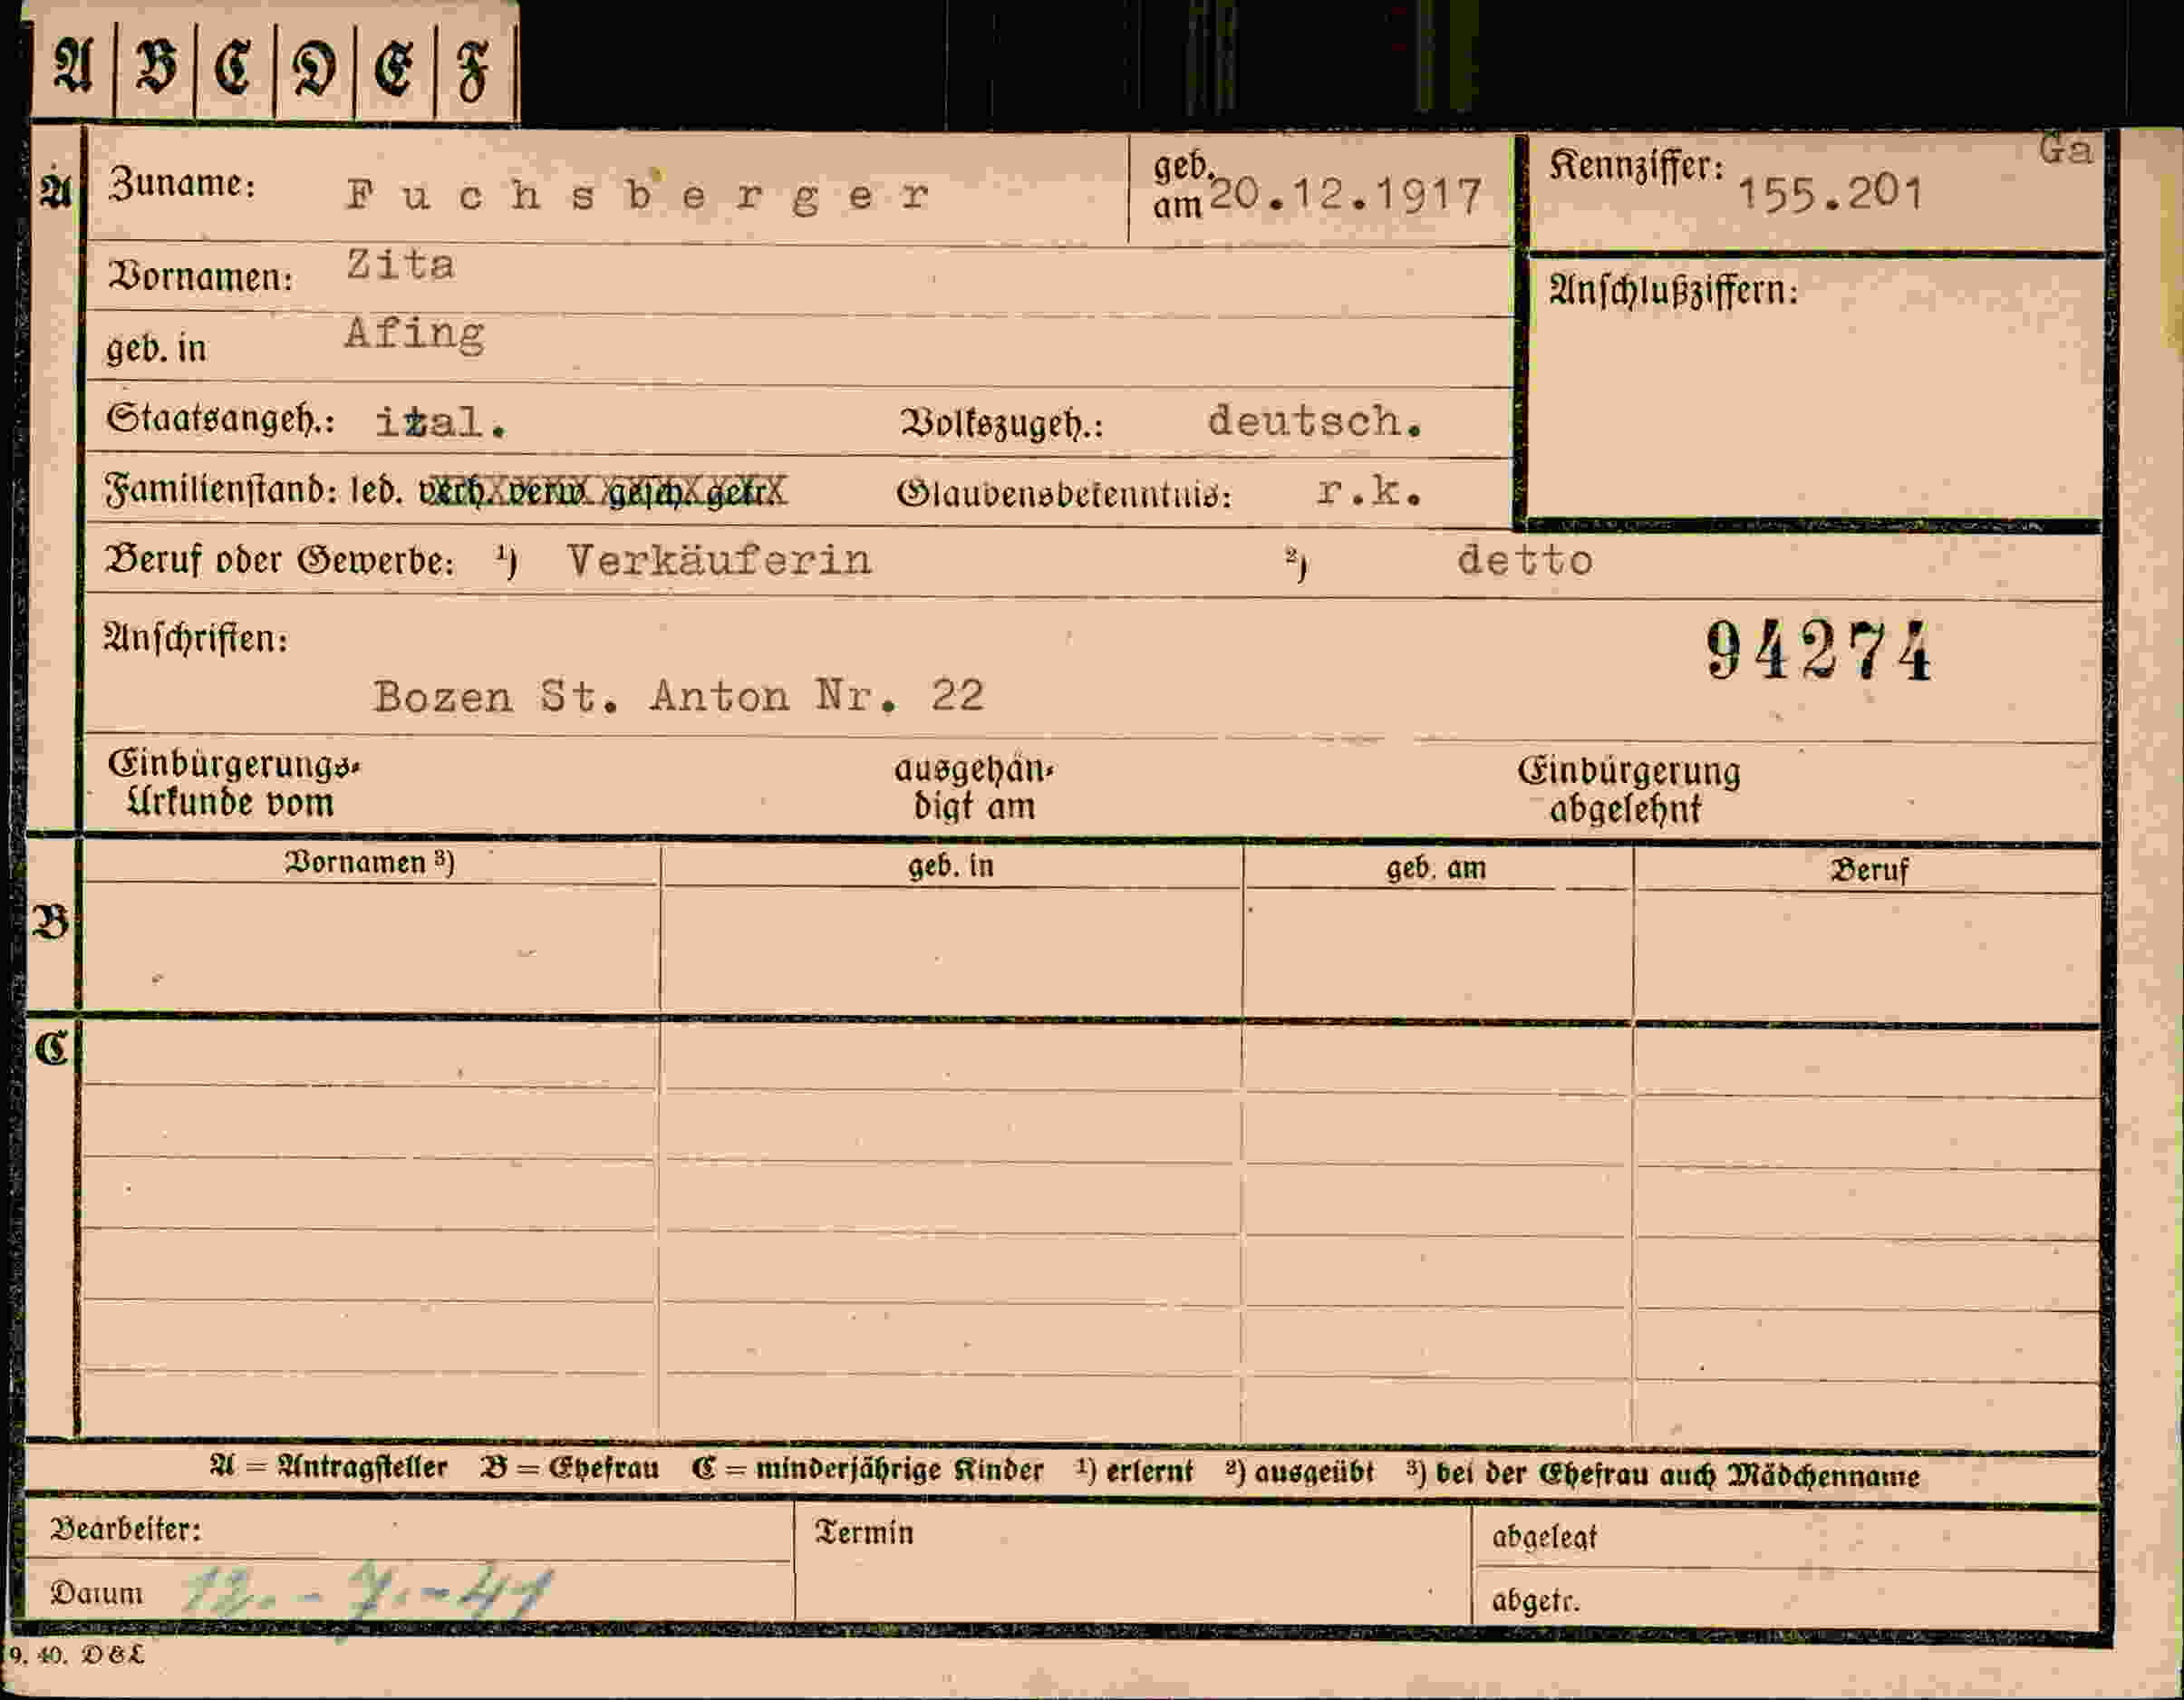 A B C D E F
Ga
A Zuname: Fuchsberger geb. am 20.12.1917 Kennziffer: 155.201
Vornamen: Zita Anschlußziffern:
geb. in Afing
Staatsangeh.: ital. Volkszugeh.: deutsch.
Familienstand: led. verh. verw. gesch. getr. Glaubensbekenntnis: r.k.
Beruf oder Gewerbe: ¹) Verkäuferin ²) detto
Anschriften: 94274
Bozen St. Anton Nr. 22
Einbürgerungs- ausgehän- Einbürgerung
Urkunde vom digt am abgelehnt
Vornamen ³) geb. in geb. am Beruf
B
C
A = Antragsteller B = Ehefrau C = minderjährige Kinder ¹) erlernt ²) ausgeübt ³) bei der Ehefrau auch Mädchenname
Bearbeiter: Termin abgelegt
Datum 12.-7.-41 abgetr.
9. 40. D&L